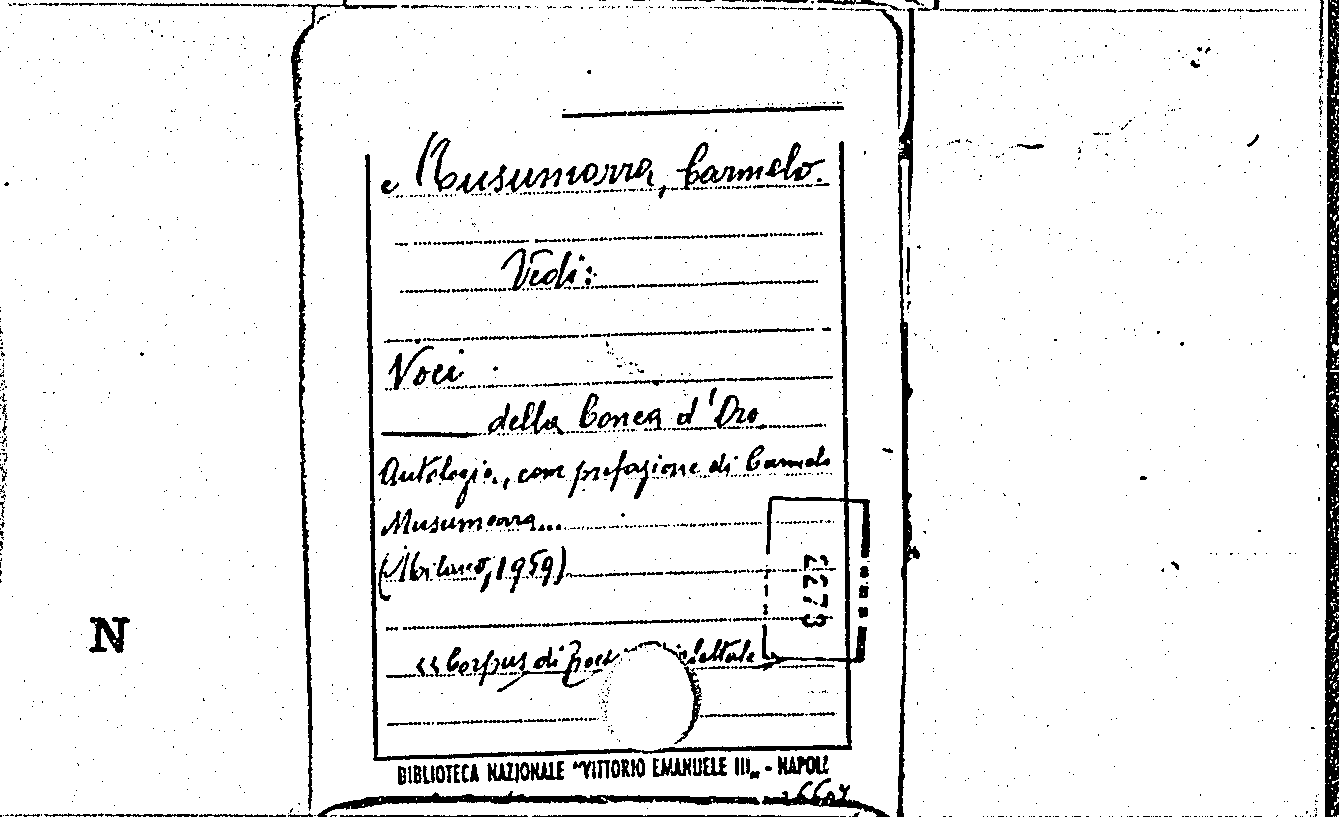 Musumarra, Carmelo.
Vedi:
Voci
della Conca d'Oro.
Antologia, con prefazione di Carmelo
Musumarra...
(Milano, 1959)
«Corpus di dialettale»
BIBLIOTECA NAZIONALE "VITTORIO EMANUELE III„ - NAPOLI
N